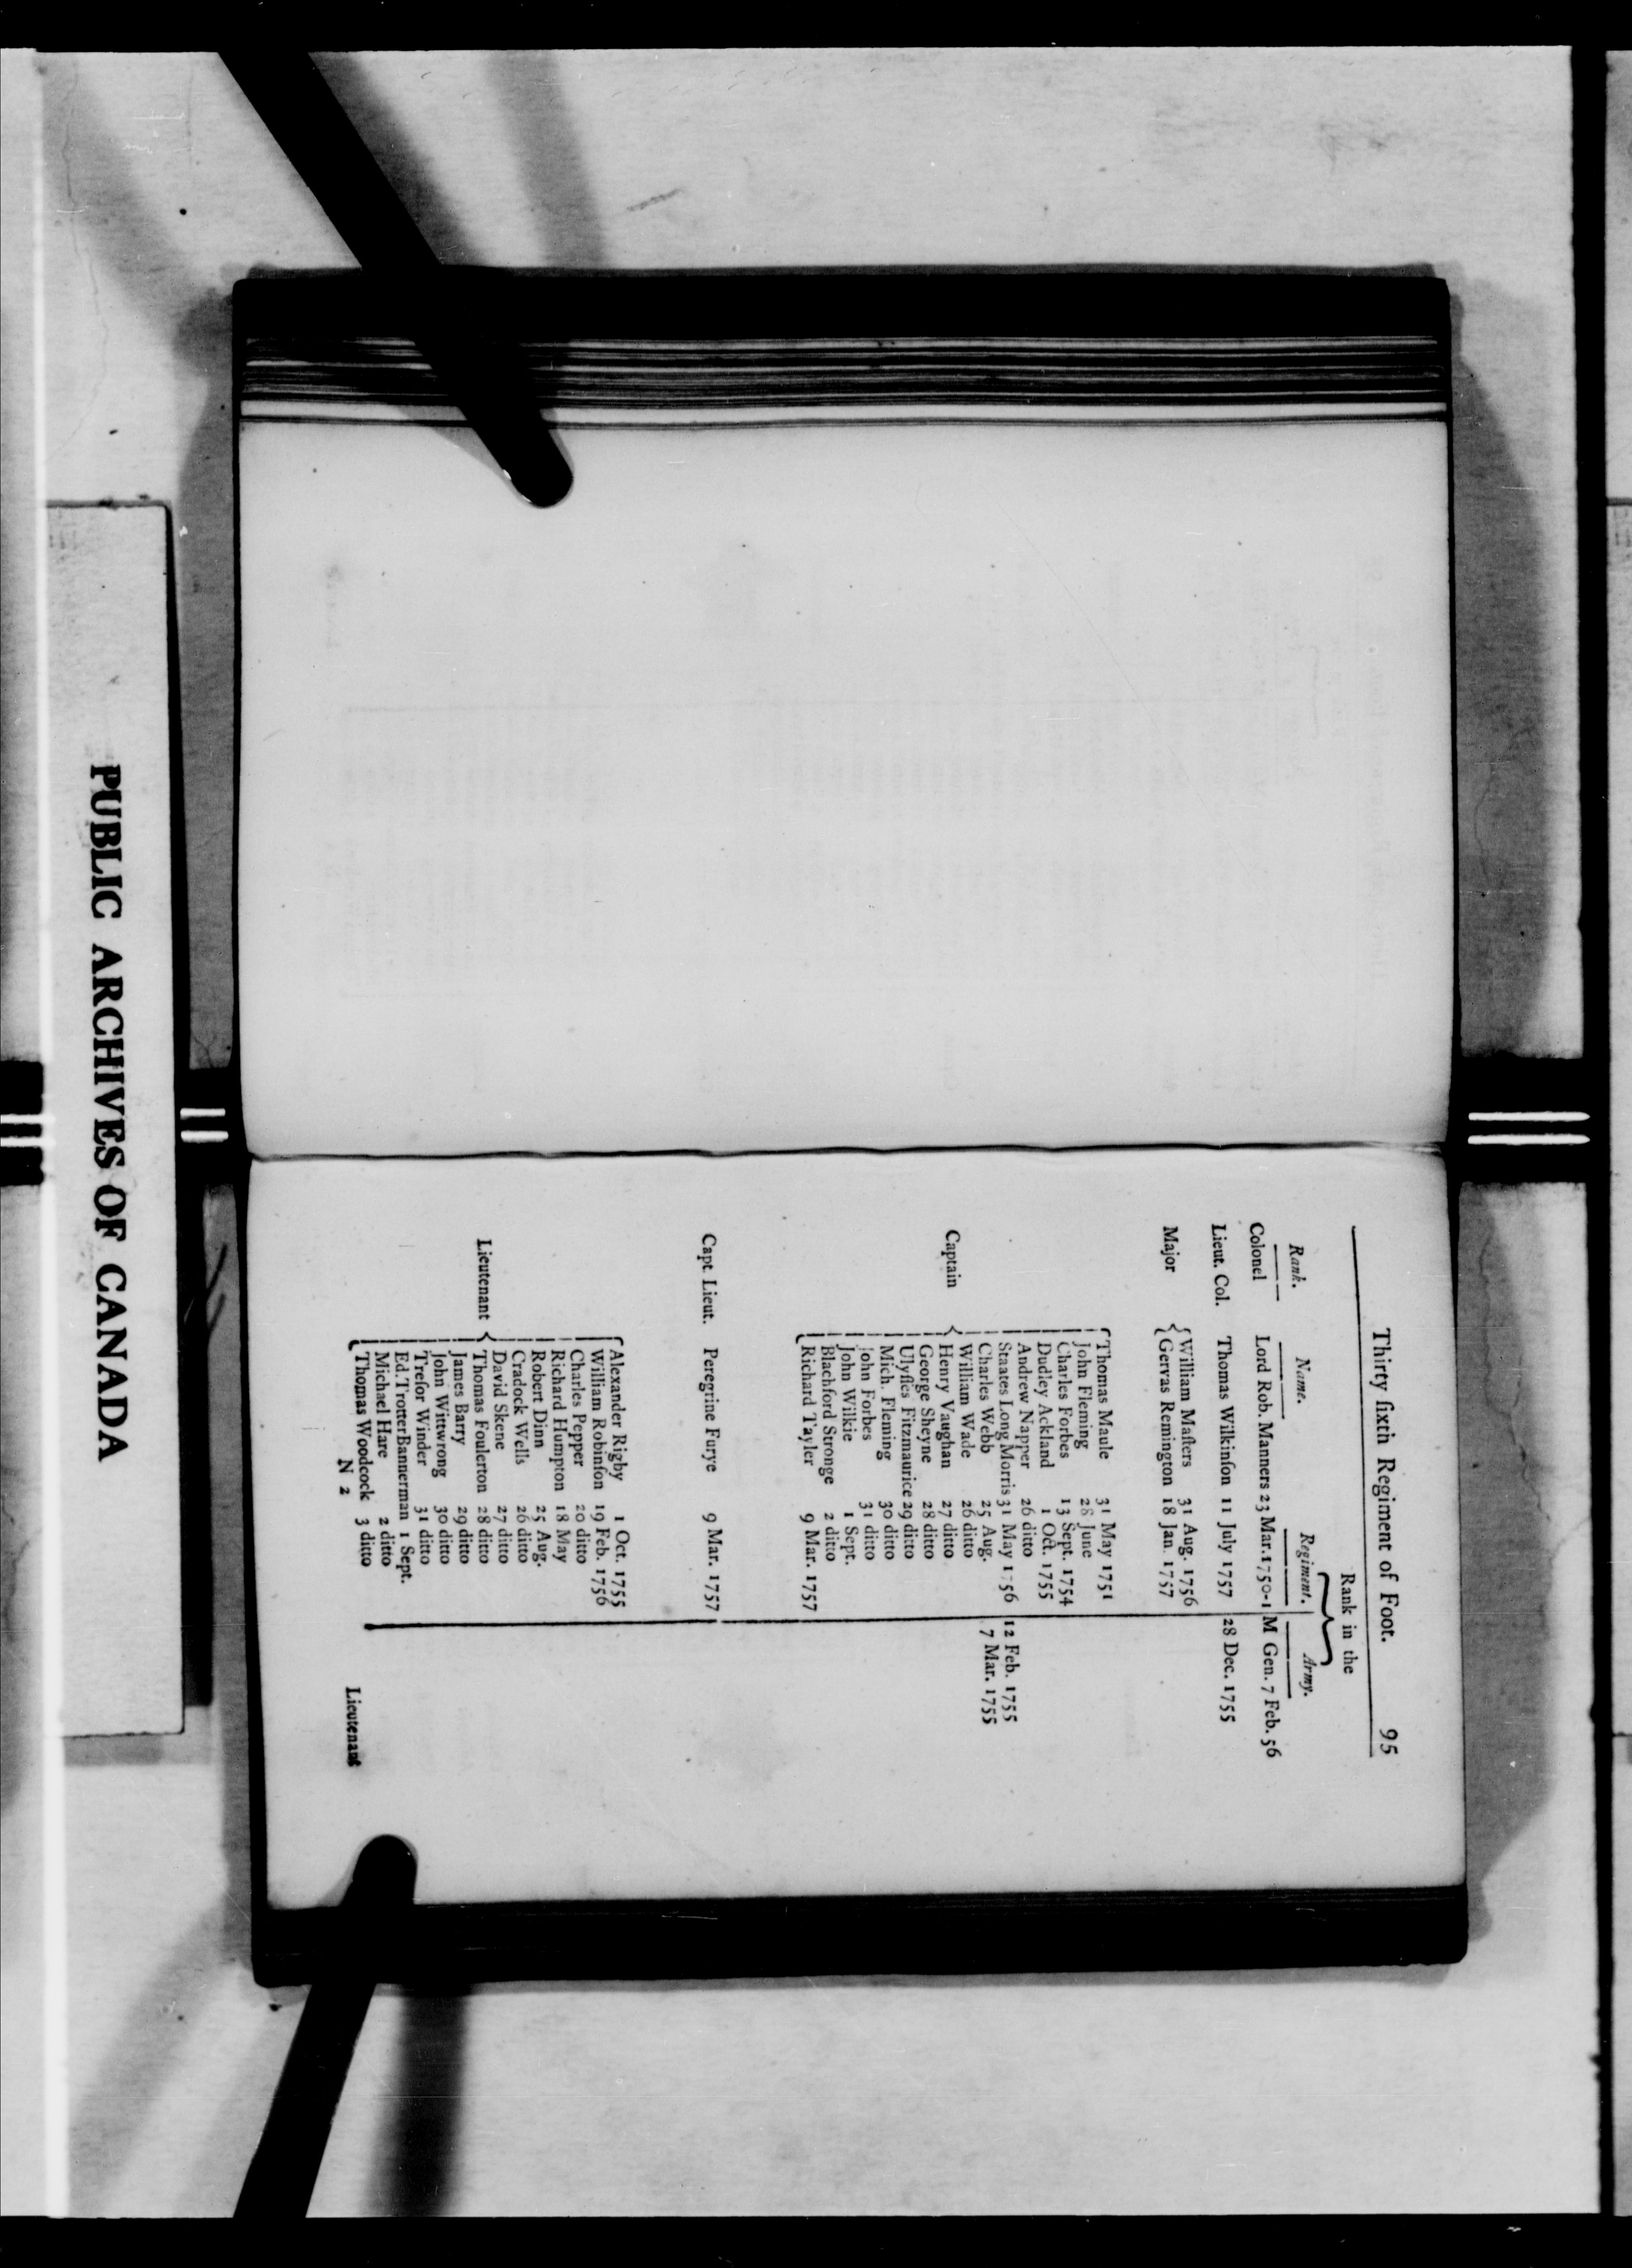 Thirty ſixth Regiment of Foot. 95
Rank in the
Rank. Name. Regiment. Army.
Colonel Lord Rob. Manners 23 Mar. 1750-1 M Gen. 7 Feb. 56
Lieut. Col. Thomas Wilkinſon 11 July 1757 28 Dec. 1755
Major { William Maſters 31 Aug. 1756
{ Gervas Remington 18 Jan. 1757
Thomas Maule 31 May 1751
John Fleming 28 June
Charles Forbes 13 Sept. 1754
Dudley Ackland 1 Oct. 1755
Andrew Napper 26 ditto
Staates Long Morris 31 May 1756 12 Feb. 1755
Charles Webb 25 Aug. 7 Mar. 1755
William Wade 26 ditto
Captain { Henry Vaughan 27 ditto
George Sheyne 28 ditto
Ulyſſes Fitzmaurice 29 ditto
Mich. Fleming 30 ditto
John Forbes 31 ditto
John Wilkie 1 Sept.
Blachford Stronge 2 ditto
Richard Tayler 9 Mar. 1757
Capt Lieut. Peregrine Furye 9 Mar. 1757
Alexander Rigby 1 Oct. 1755
William Robinſon 19 Feb. 1756
Charles Pepper 20 ditto
Richard Humpton 18 May
Robert Dinn 25 Aug.
Cradock Wells 26 ditto
David Skene 27 ditto
Lieutenant { Thomas Foulerton 28 ditto
James Barry 29 ditto
John Wittwrong 30 ditto
Treſor Winder 31 ditto
Ed. Trotter Bannerman 1 Sept.
Michael Hare 2 ditto
Thomas Woodcock 3 ditto
N 2 Lieutenant
PUBLIC ARCHIVES OF CANADA